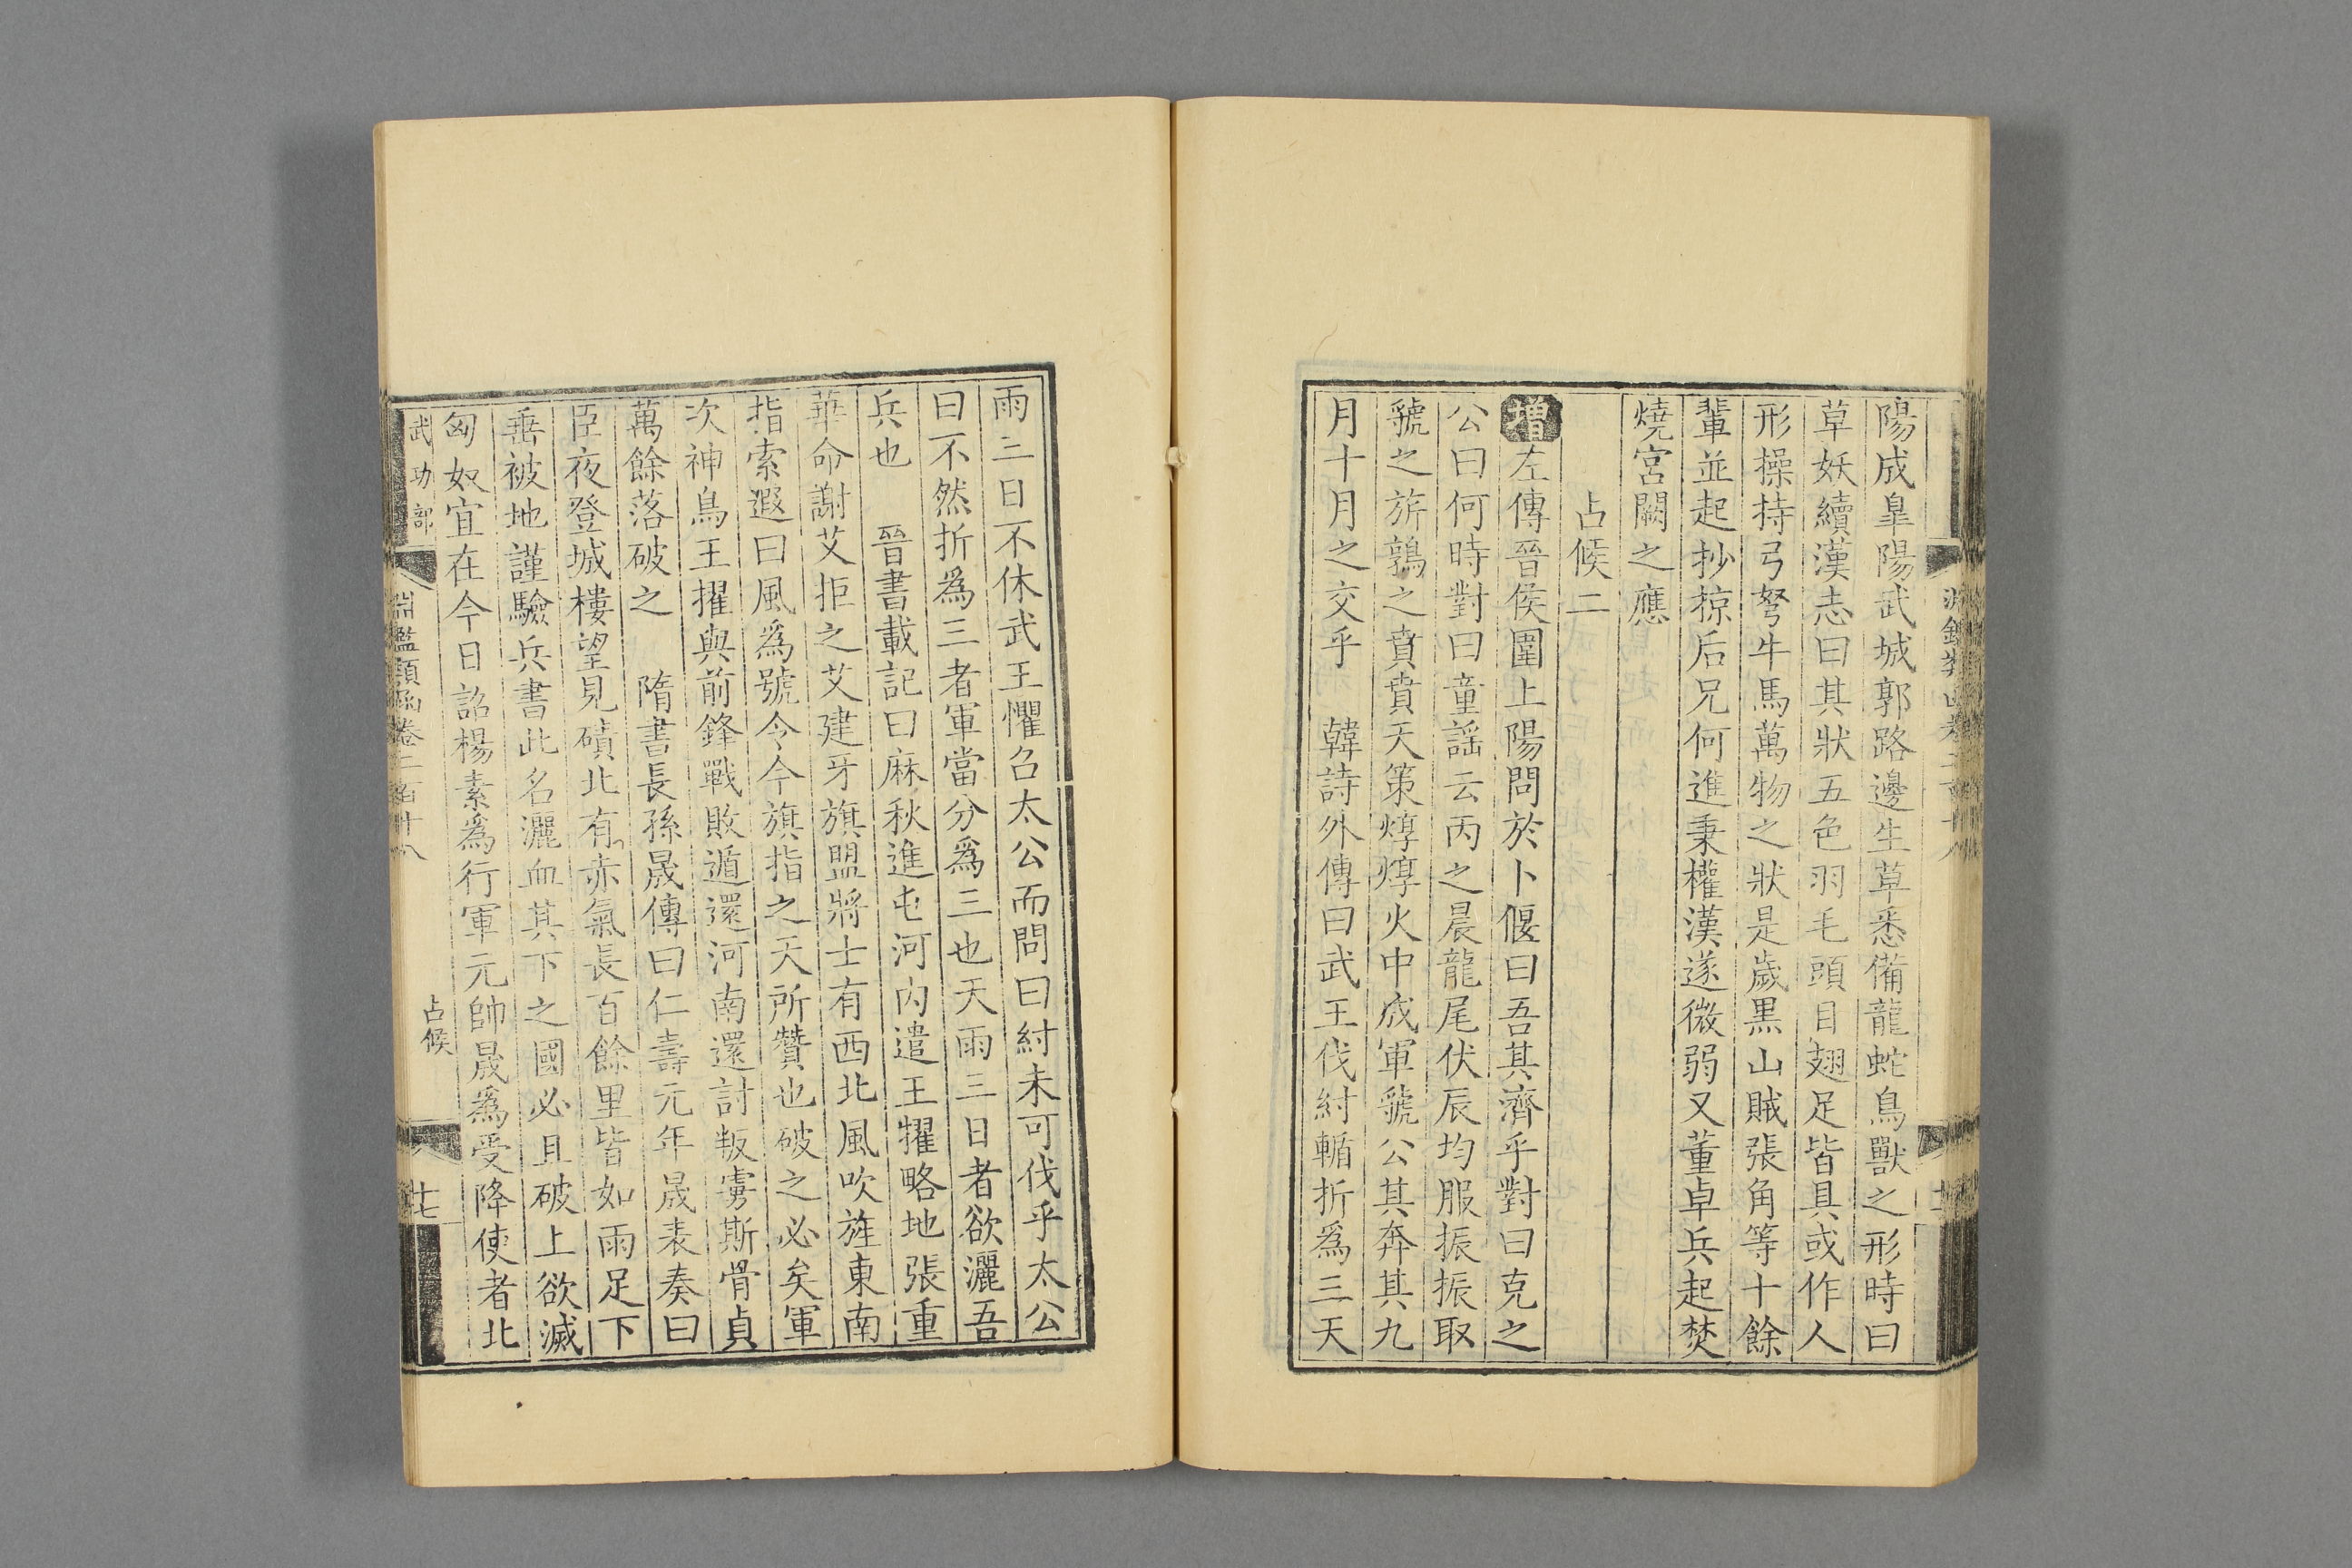 陽成臯陽武城郭路邊生草悉備龍蛇鳥獸之形時曰
草妖續漢志曰其狀五色羽毛頭目翅足皆具或作人
形操持弓弩牛馬萬物之狀是歲黒山賊張角等十餘
輩並起抄掠后兄何進秉權漢遂微弱又董卓兵起焚
燒宮闕之應
占候二
增左傳晉侯圍上陽問於卜偃曰吾其濟乎對曰克之
公曰何時對曰童謡云丙之晨龍尾伏辰均服振振取
虢之旂鶉之賁賁天策焞焞火中成軍虢公其奔其九
月十月之交乎 韓詩外傳曰武王伐紂輴折爲三天
雨三日不休武王懼召太公而問曰紂未可伐乎太公
曰不然折爲三者軍當分爲三也天雨三日者欲灑吾
兵也 晉書載記曰麻秋進屯河内遣王擢略地張重
華命謝艾拒之艾建牙旗盟將士有西北風吹旌東南
指索遐曰風爲號令今旗指之天所贊也破之必矣軍
次神鳥王擢與前鋒戰敗遁還河南還討叛虜斯骨貞
萬餘落破之 隋書長孫晟傳曰仁壽元年晟表奏曰
臣夜登城樓望見磧北有赤氣長百餘里皆如雨足下
垂被地謹驗兵書此名灑血其下之國必且破上欲滅
匈奴宜在今日詔楊素爲行軍元帥晟爲受降使者北
武功部
淵鑑類函卷二百十八
占候
十七